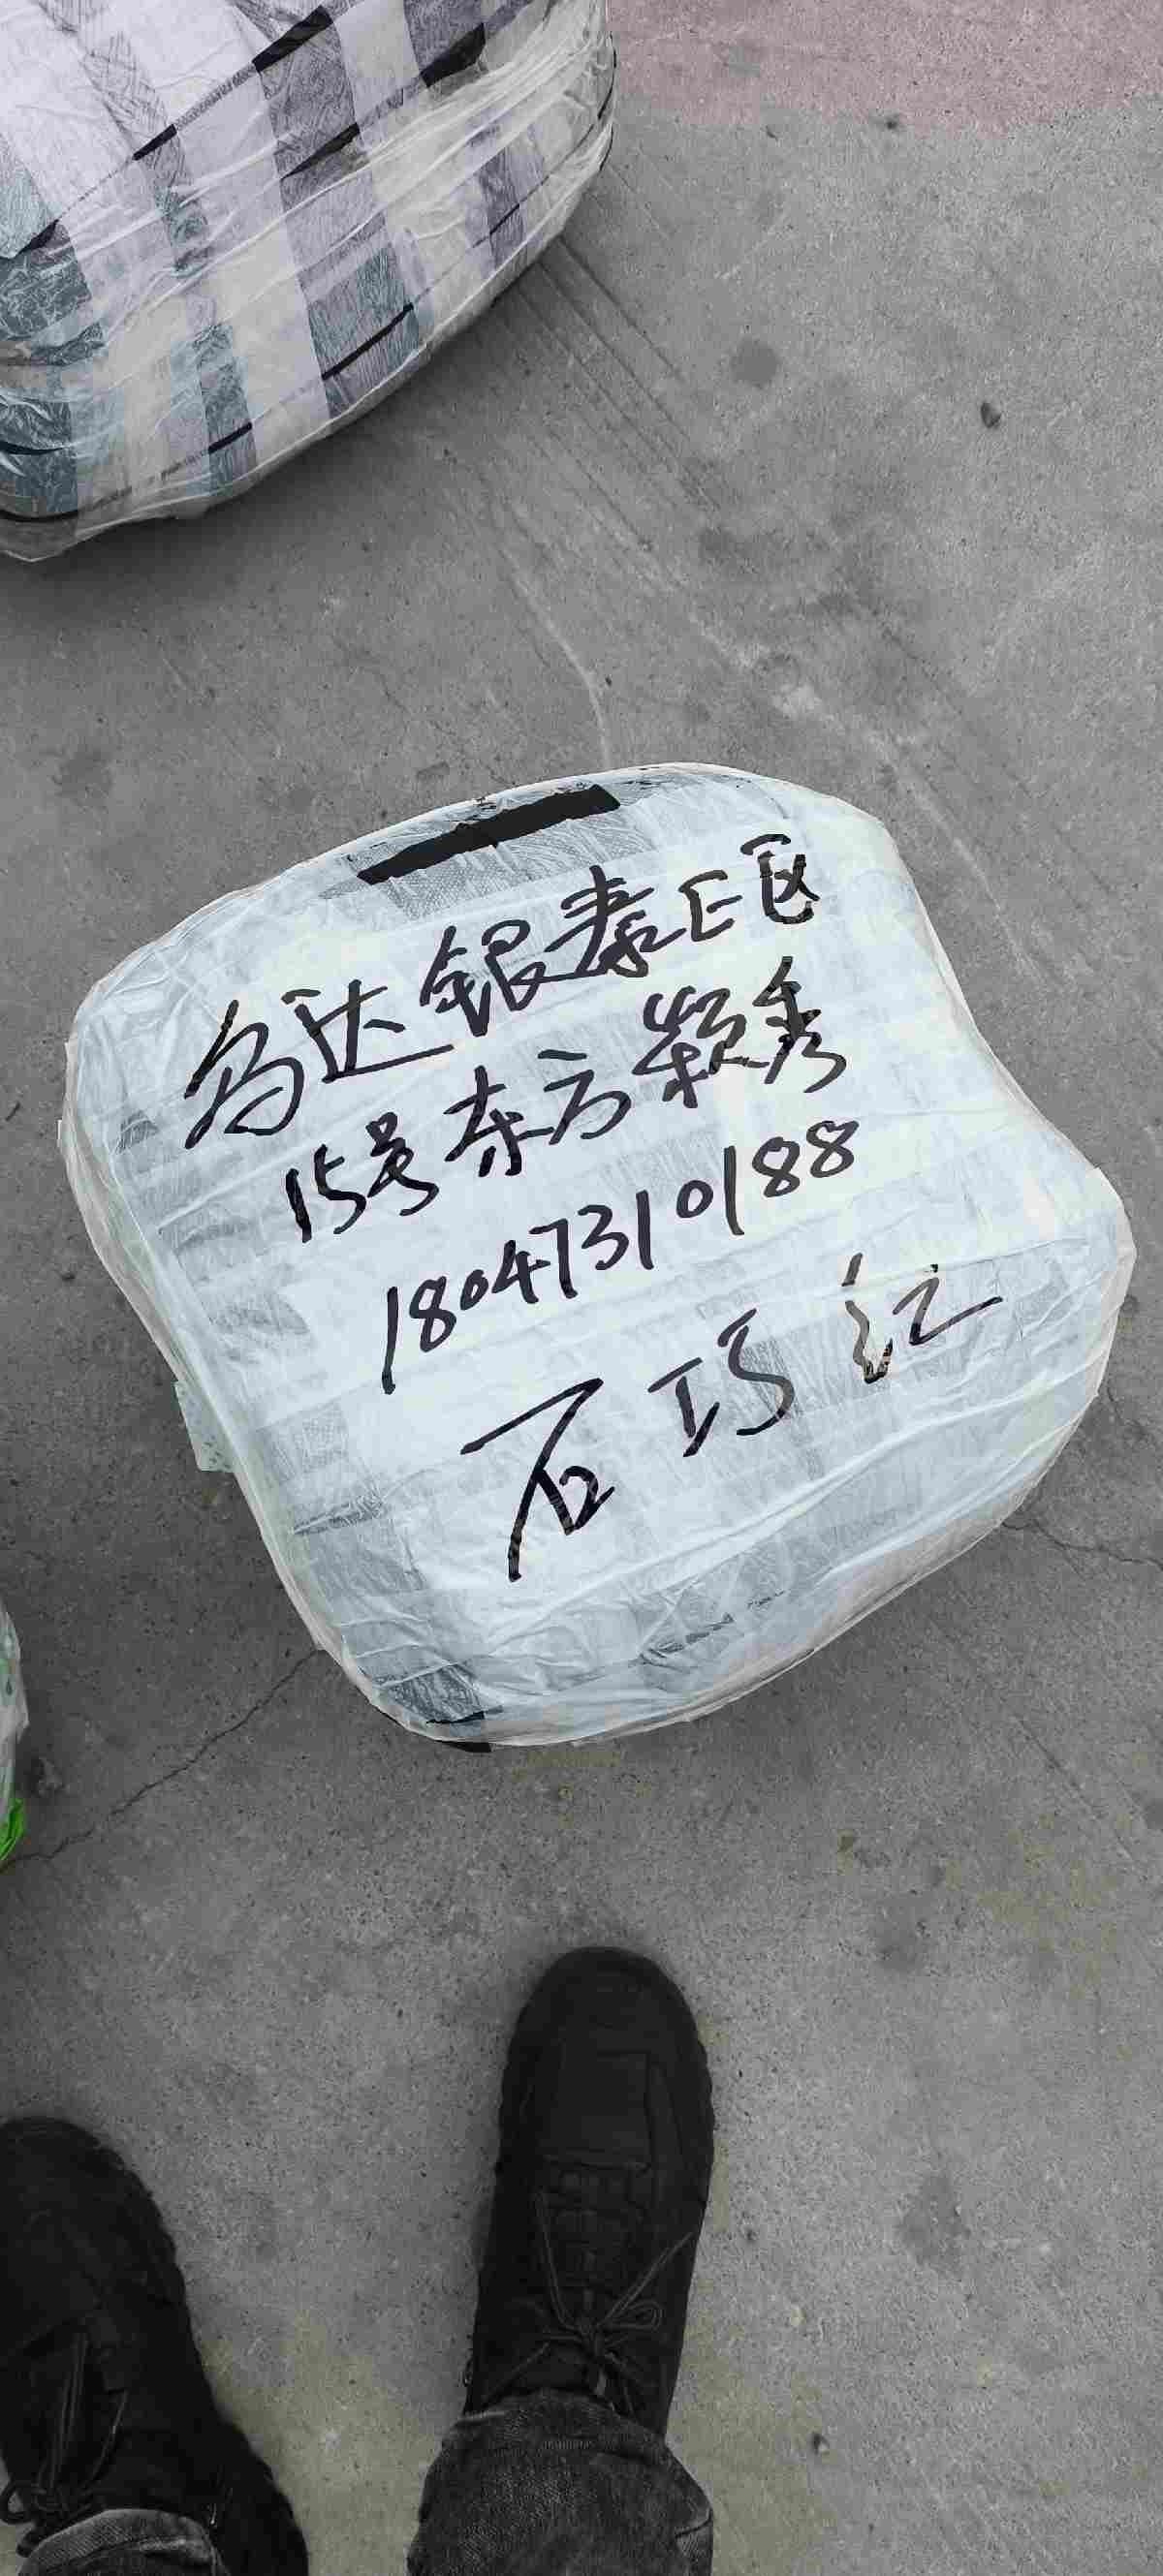 乌达银泰E区
15号东方颖秀
18047310188
石巧红